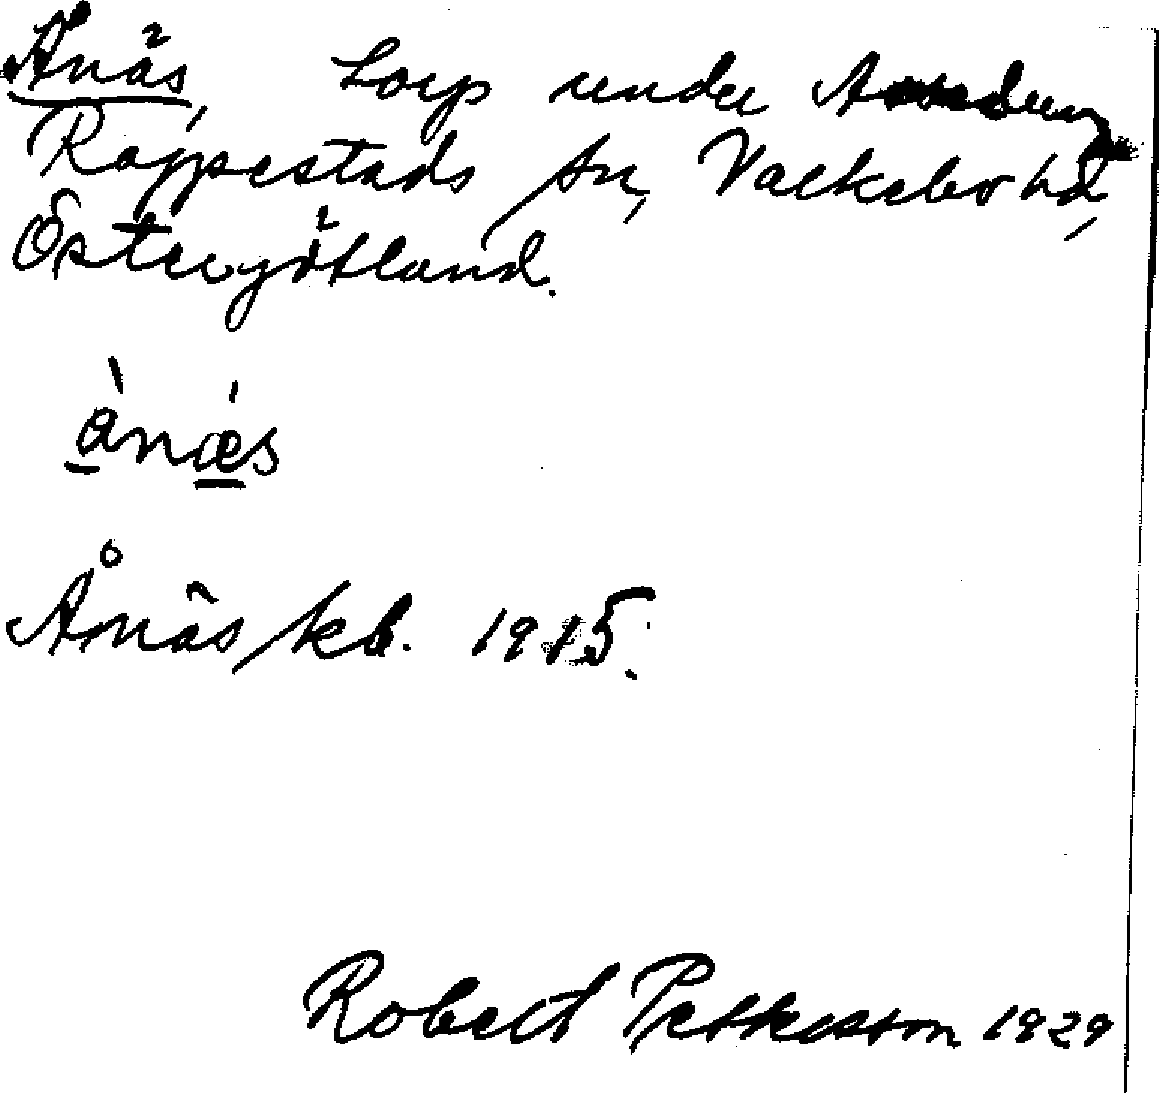 Ånäs, torp under
Rappestads sn, Valkebo hd,
Östergötland.
ànæ̀s
Ånäs kb. 1915.
Robert Pettersson 1929